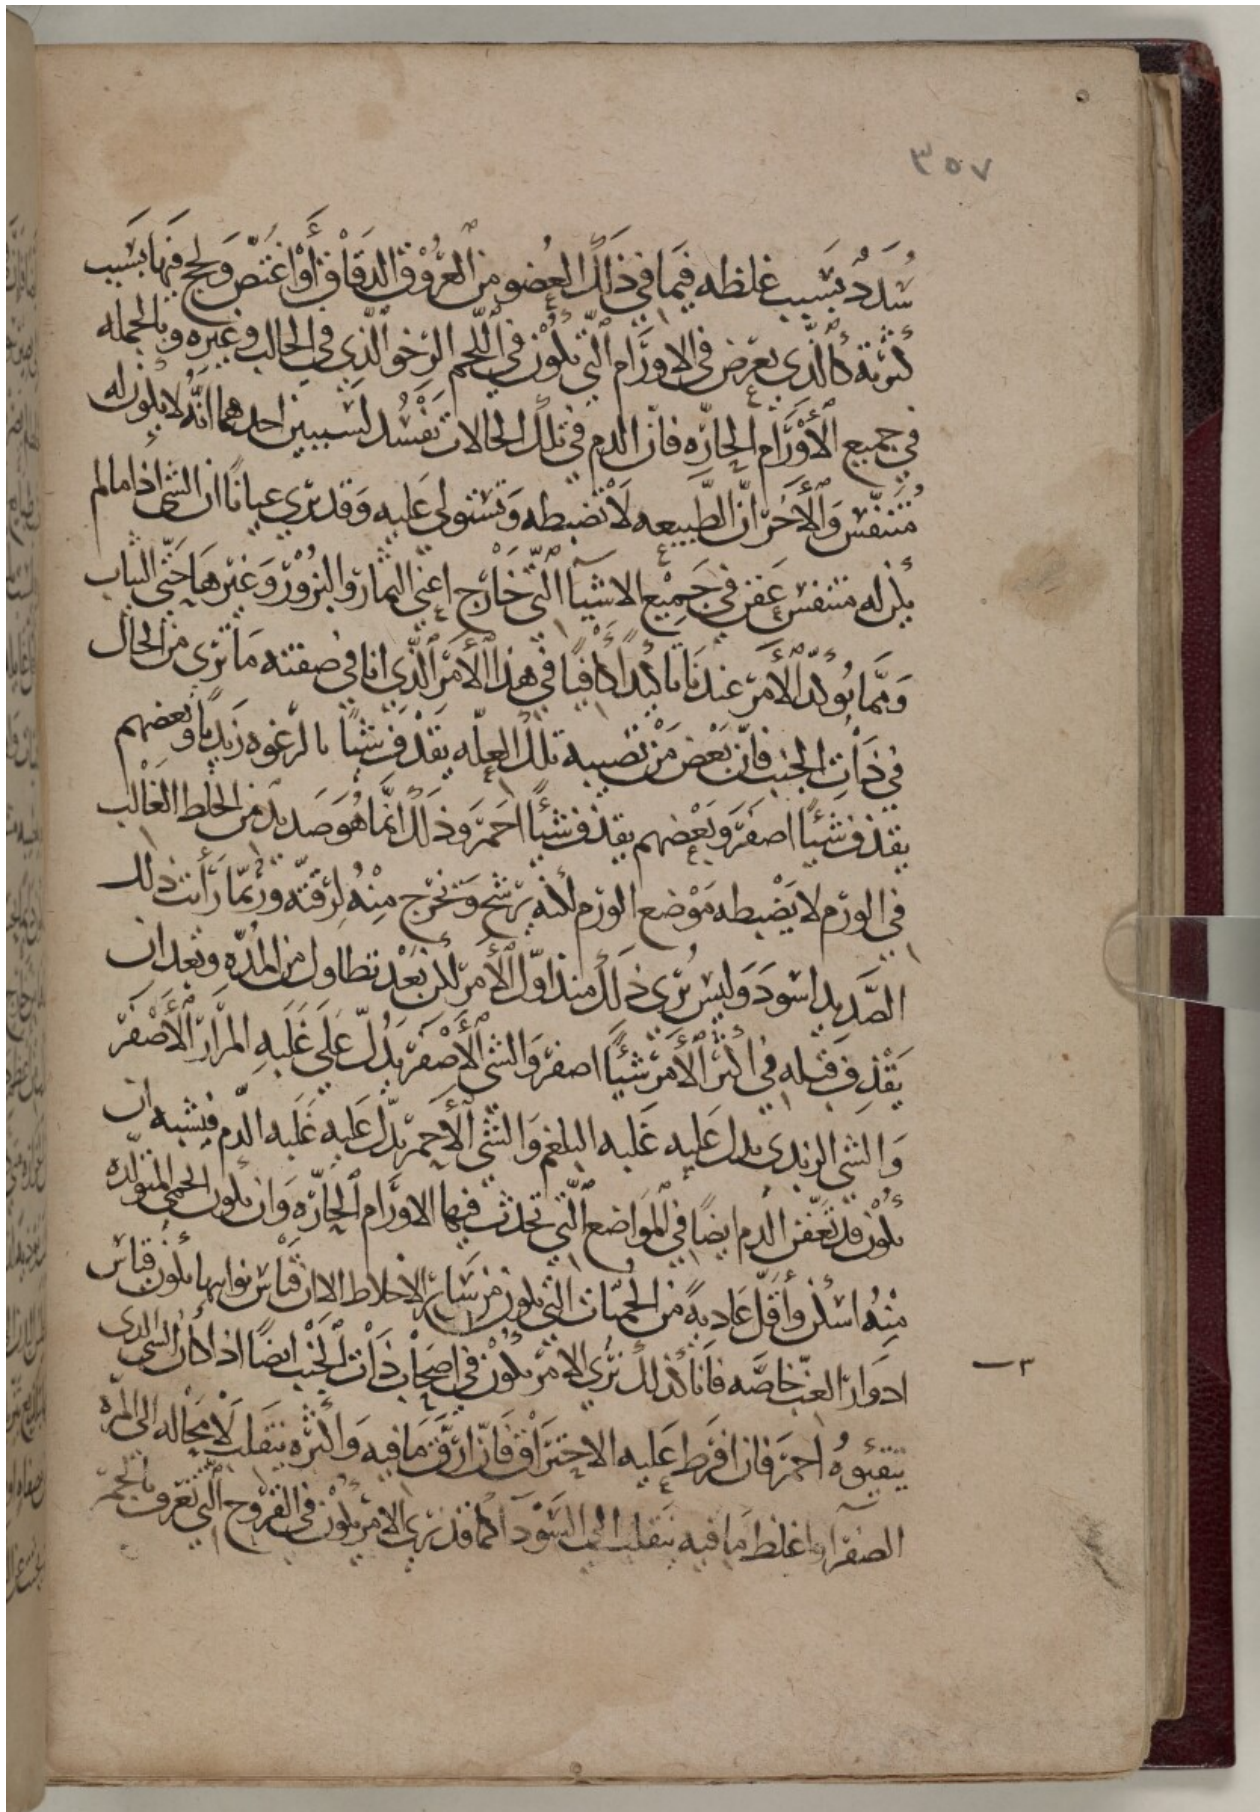 ٣٥٧
سُدَدٌ بسَبب غلظه فيمَا في ذَلك العُضو من العُرُوْق الدقاق أَوْ اغتُصّ وَلحج فيهَا بسَبب
كثرته كالّذي يعرض في الاورَام الّتي تكُوْن في اللّحم الرّخو الّذي في الحالب وغيره وبالجمله
في جميع الأَوْرَام الحارّه فانّ الدم في تلك الحالات يَفْسُد لسَببين احدهما انّه لا يكون له
مُتَنفّس وَالأَخَر انّ الطّبيعه لَا تضبطه وَتستولي عَليه وَقد يرى عيانًا ان الشي اذا ما لم
يكن له متنفس عَفن في جَمِيْع الاشيآ الّتي خَارج اعني الثمار والبزُوْر وَغيرهَا حَتّى الثياب
وَممّا يُؤكّد الأَمرَ عندنَا تاكيدًا كَافيًا في هذا الأَمر الّذي انا في صفته مَا تَرى من الحال
في ذَات الجنب فانّ بَعْض مَنْ تصيبه تلك العلّه يقذف شيْأ بالرّغوه زَبَديًا وبَعضهم
يقذف شَيْئًا اصفَر وَبَعْضهم يقذف شيْأ احمَر وَذَلك انّما هُوَ صَديد من الخلط الغَالب
في الورَم لا يَضْبطه مَوْضع الورَم لكنه يرشح وَيخرج مِنْهُ لِرقّته وَرُبّمَا رَأَيت ذلك
الصَّديد اسوَدَ وَليس يُرَى ذَلك منذ اوّل الأَمر لكن بَعْد تطاول من المُدّه وَبَعد ان
يَقْذِف قبله في اكثر الأَمر شيْئًا اصفر وَالشي الأَصْفَر يَدُلّ عَلَى غَلَبهِ المرَار الأَصْفَر
وَالشي الزبَدى يدل عَليه غَلبه البلغم وَالشي الأَحمَر يدُلّ عَليه غَلَبه الدّم فيُشبه ان
يكُوْن قد تَعَفّن الدم ايضًا في المَوَاضع الّتي تحدث فيها الاورَام الحارّه وَان يكون الحمى المتولّده
مِنْهُ اسكن وأَقلّ عَاديةً من الحمّيات التي يكون من سَاير الاخلاط الا ان قيَاس نوايبها يكون قيَاس
ادوَار الغبّ خاصّه فَانا كذلك نَرَى الامر يكُوْن في اصحَاب ذَات الجَنب ايضًا اذا كان الشي الذي
يتقيؤهُ احمَر فان افرَط عَليه الاحترَاق فَانّ ارَقّ مَا فيه وَاكثره ينقلب لَا محَاله الى المرّه
الصفرا وَاغلظ مَا فيه ينقلب الى السَّوْدَا كما قد نرى الامر يكُوْن في القرُوح الّتي تعْرف بالجمر
٣